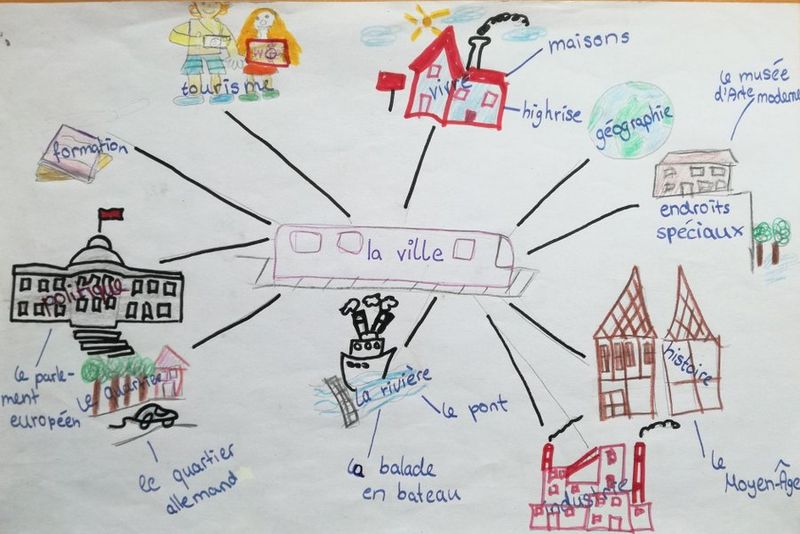 tourisme
vivre
maisons
highrise
géographie
le musée
d'Arte moderne
formation
endroits
spéciaux
la ville
politique
le parle-
ment
européen
le quartier
le quartier
allemand
la rivière
le pont
la balade
en bateau
histoire
le
Moyen-Âge
industrie